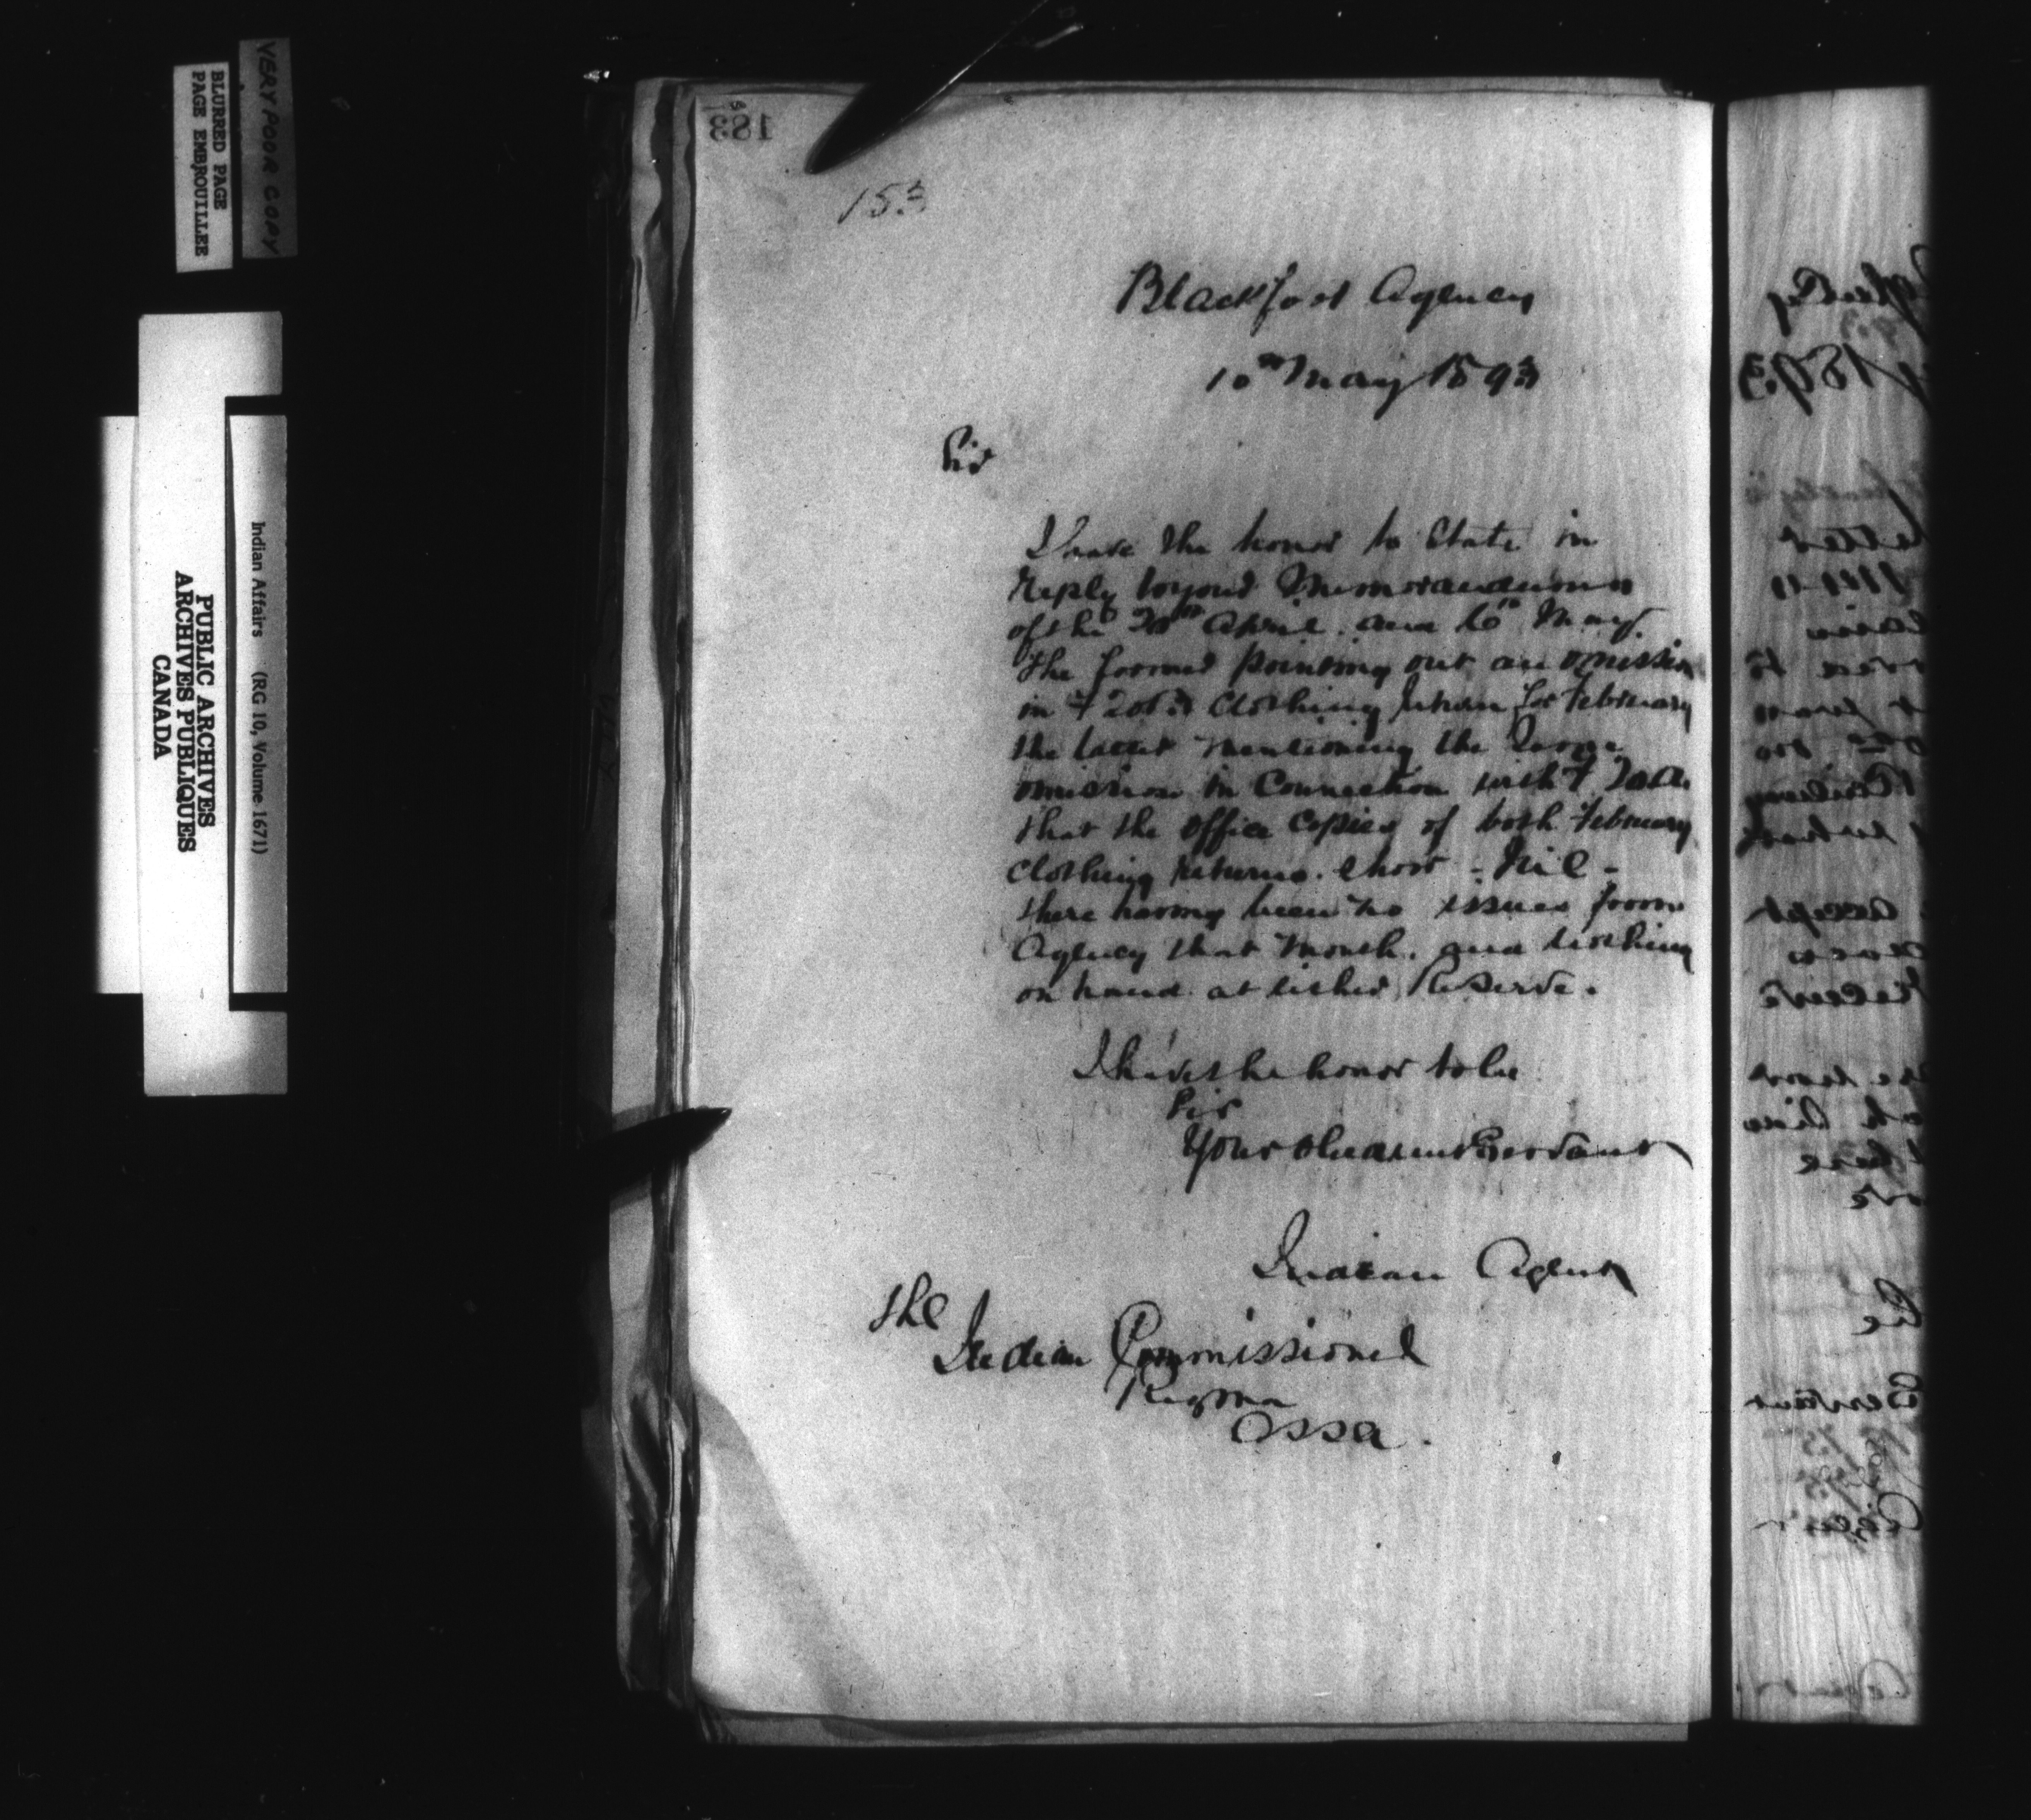 VERY POOR COPY
BLURRED PAGE
PAGE EMBROUILLEE
Indian Affairs (RG 10, Volume 1671)
PUBLIC ARCHIVES
ARCHIVES PUBLIQUES
CANADA
183
153
Blackfoot Agency
10th May 1893
Sir
I have the honor to State in
reply to your Memorandums
of the April. and May.
the former pointing out an omission
in Clothing return for February
the latter mentioning the same
omission in Connection with
that the office Copies of both February
Clothing returns. show - Nil -
there having been no issues from
Agency that Month. and nothing
on hand at either Reserve.
I have the honor to be
Sir
Your obedient Servant
Indian Agent
The
Indian Commissioner
Regina
Assa.